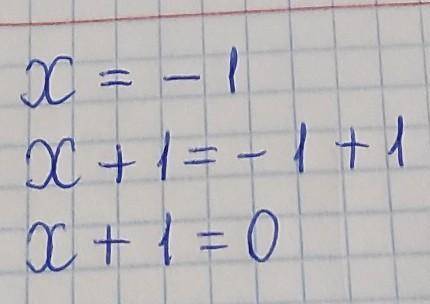 x = - 1
x + 1 = - 1 + 1
x + 1 = 0